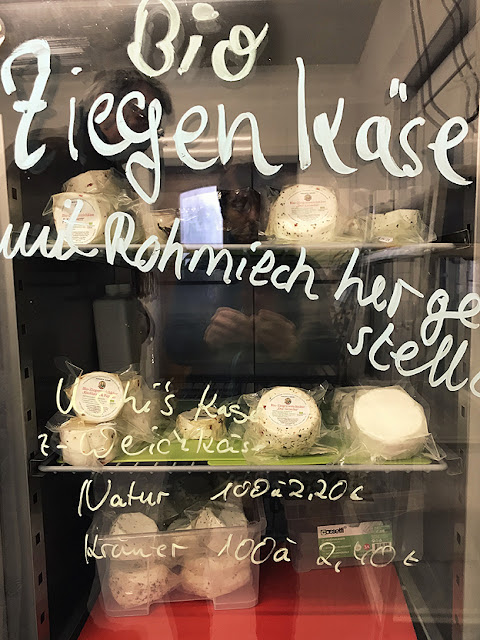 Bio
Ziegenkäse
mit Rohmilch herge
stellt
Käse
Z-Weichkäse
Natur 100 à 2,20 €
Kräuter 100 à 2,40 €